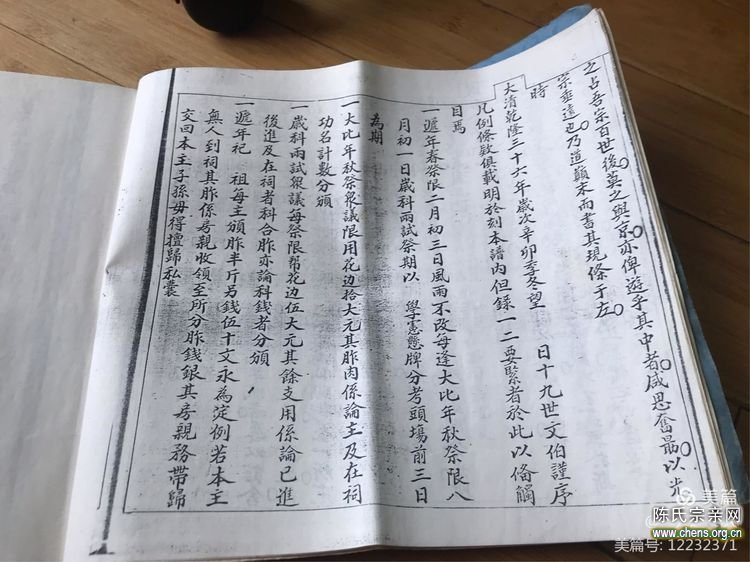 之占吾宗百世後莫之與京亦俾遊乎其中者咸思奮最以光
宗垂遠也乃道巔末而書其現條于左
時
大清乾隆三十六年歲次辛卯季冬望 日十九世文伯謹序
凡例條款俱載明於刻本譜內但錄一二要緊者於此以俻觸
目焉
一遞年春祭限二月初三日風雨不改每逢大比年秋祭限八
月初一日歲科兩試祭期以 學憲懸牌分考頭場前三日
為期
一大比年秋祭衆議限用花边拾大元其胙肉係論主及在祠
功名計數分頒
一歲科兩試衆議每祭限幇花边伍大元其餘支用係論已進
後進及在祠者科合胙亦論科錢者分頒
一遞年祀 祖每主頒胙半斤另錢伍十文永為定例若本主
無人到祠其胙係房親收領至所分胙錢銀其房親務帶歸
交回本主子孫毋得擅歸私囊
美篇
陈氏宗亲网
www.chens.org.cn
美篇号: 12232371